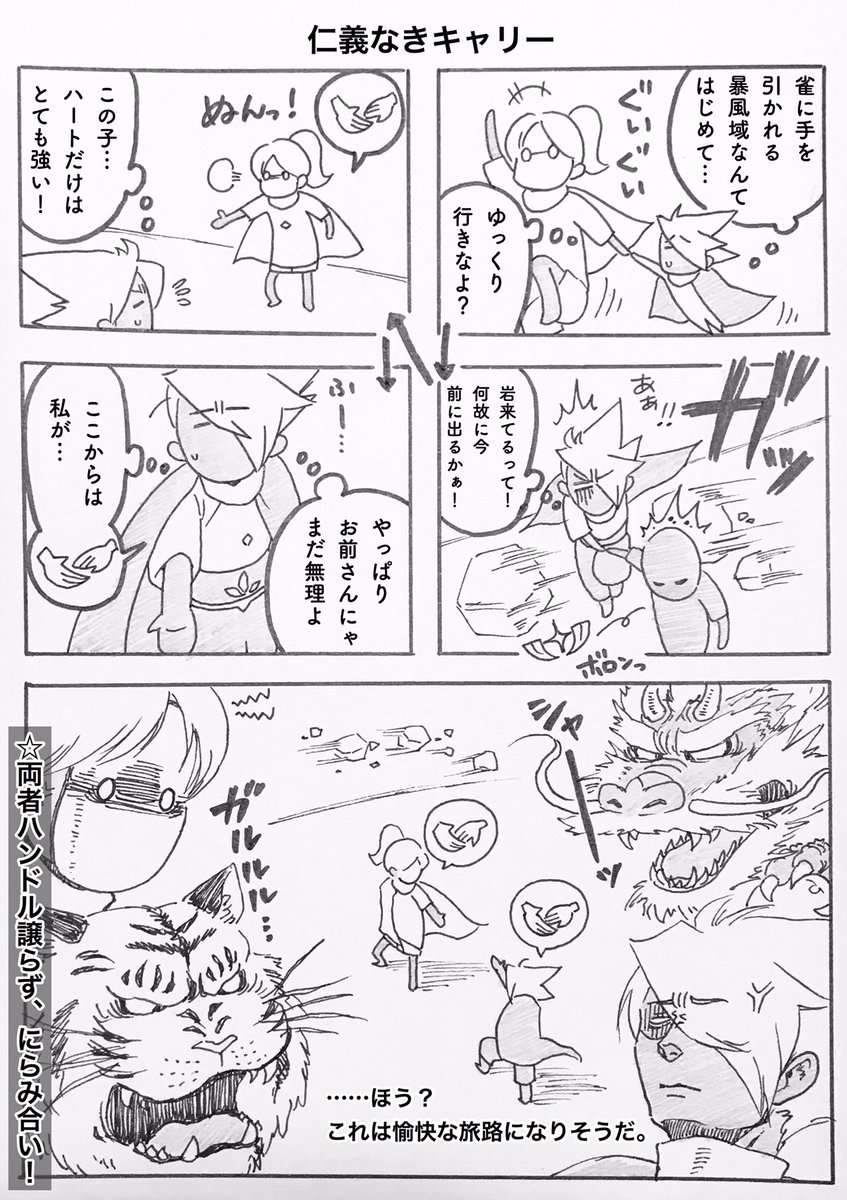 仁義なきキャリー
雀に手を
引かれる
暴風域なんて
はじめて…
ぐいぐい
ゆっくり
行きなよ?
ガガガ
あぁ!!
岩来てるって!
何故に今
前に出るかぁ!
ボロンっ
ぬんっ!
この子…
ハートだけは
とても強い!
ふー…
やっぱり
お前さんにゃ
まだ無理よ
ここからは
私が…
シャーッ
ガルルル…
……ほう?
これは愉快な旅路になりそうだ。
☆両者ハンドル譲らず、にらみ合い!